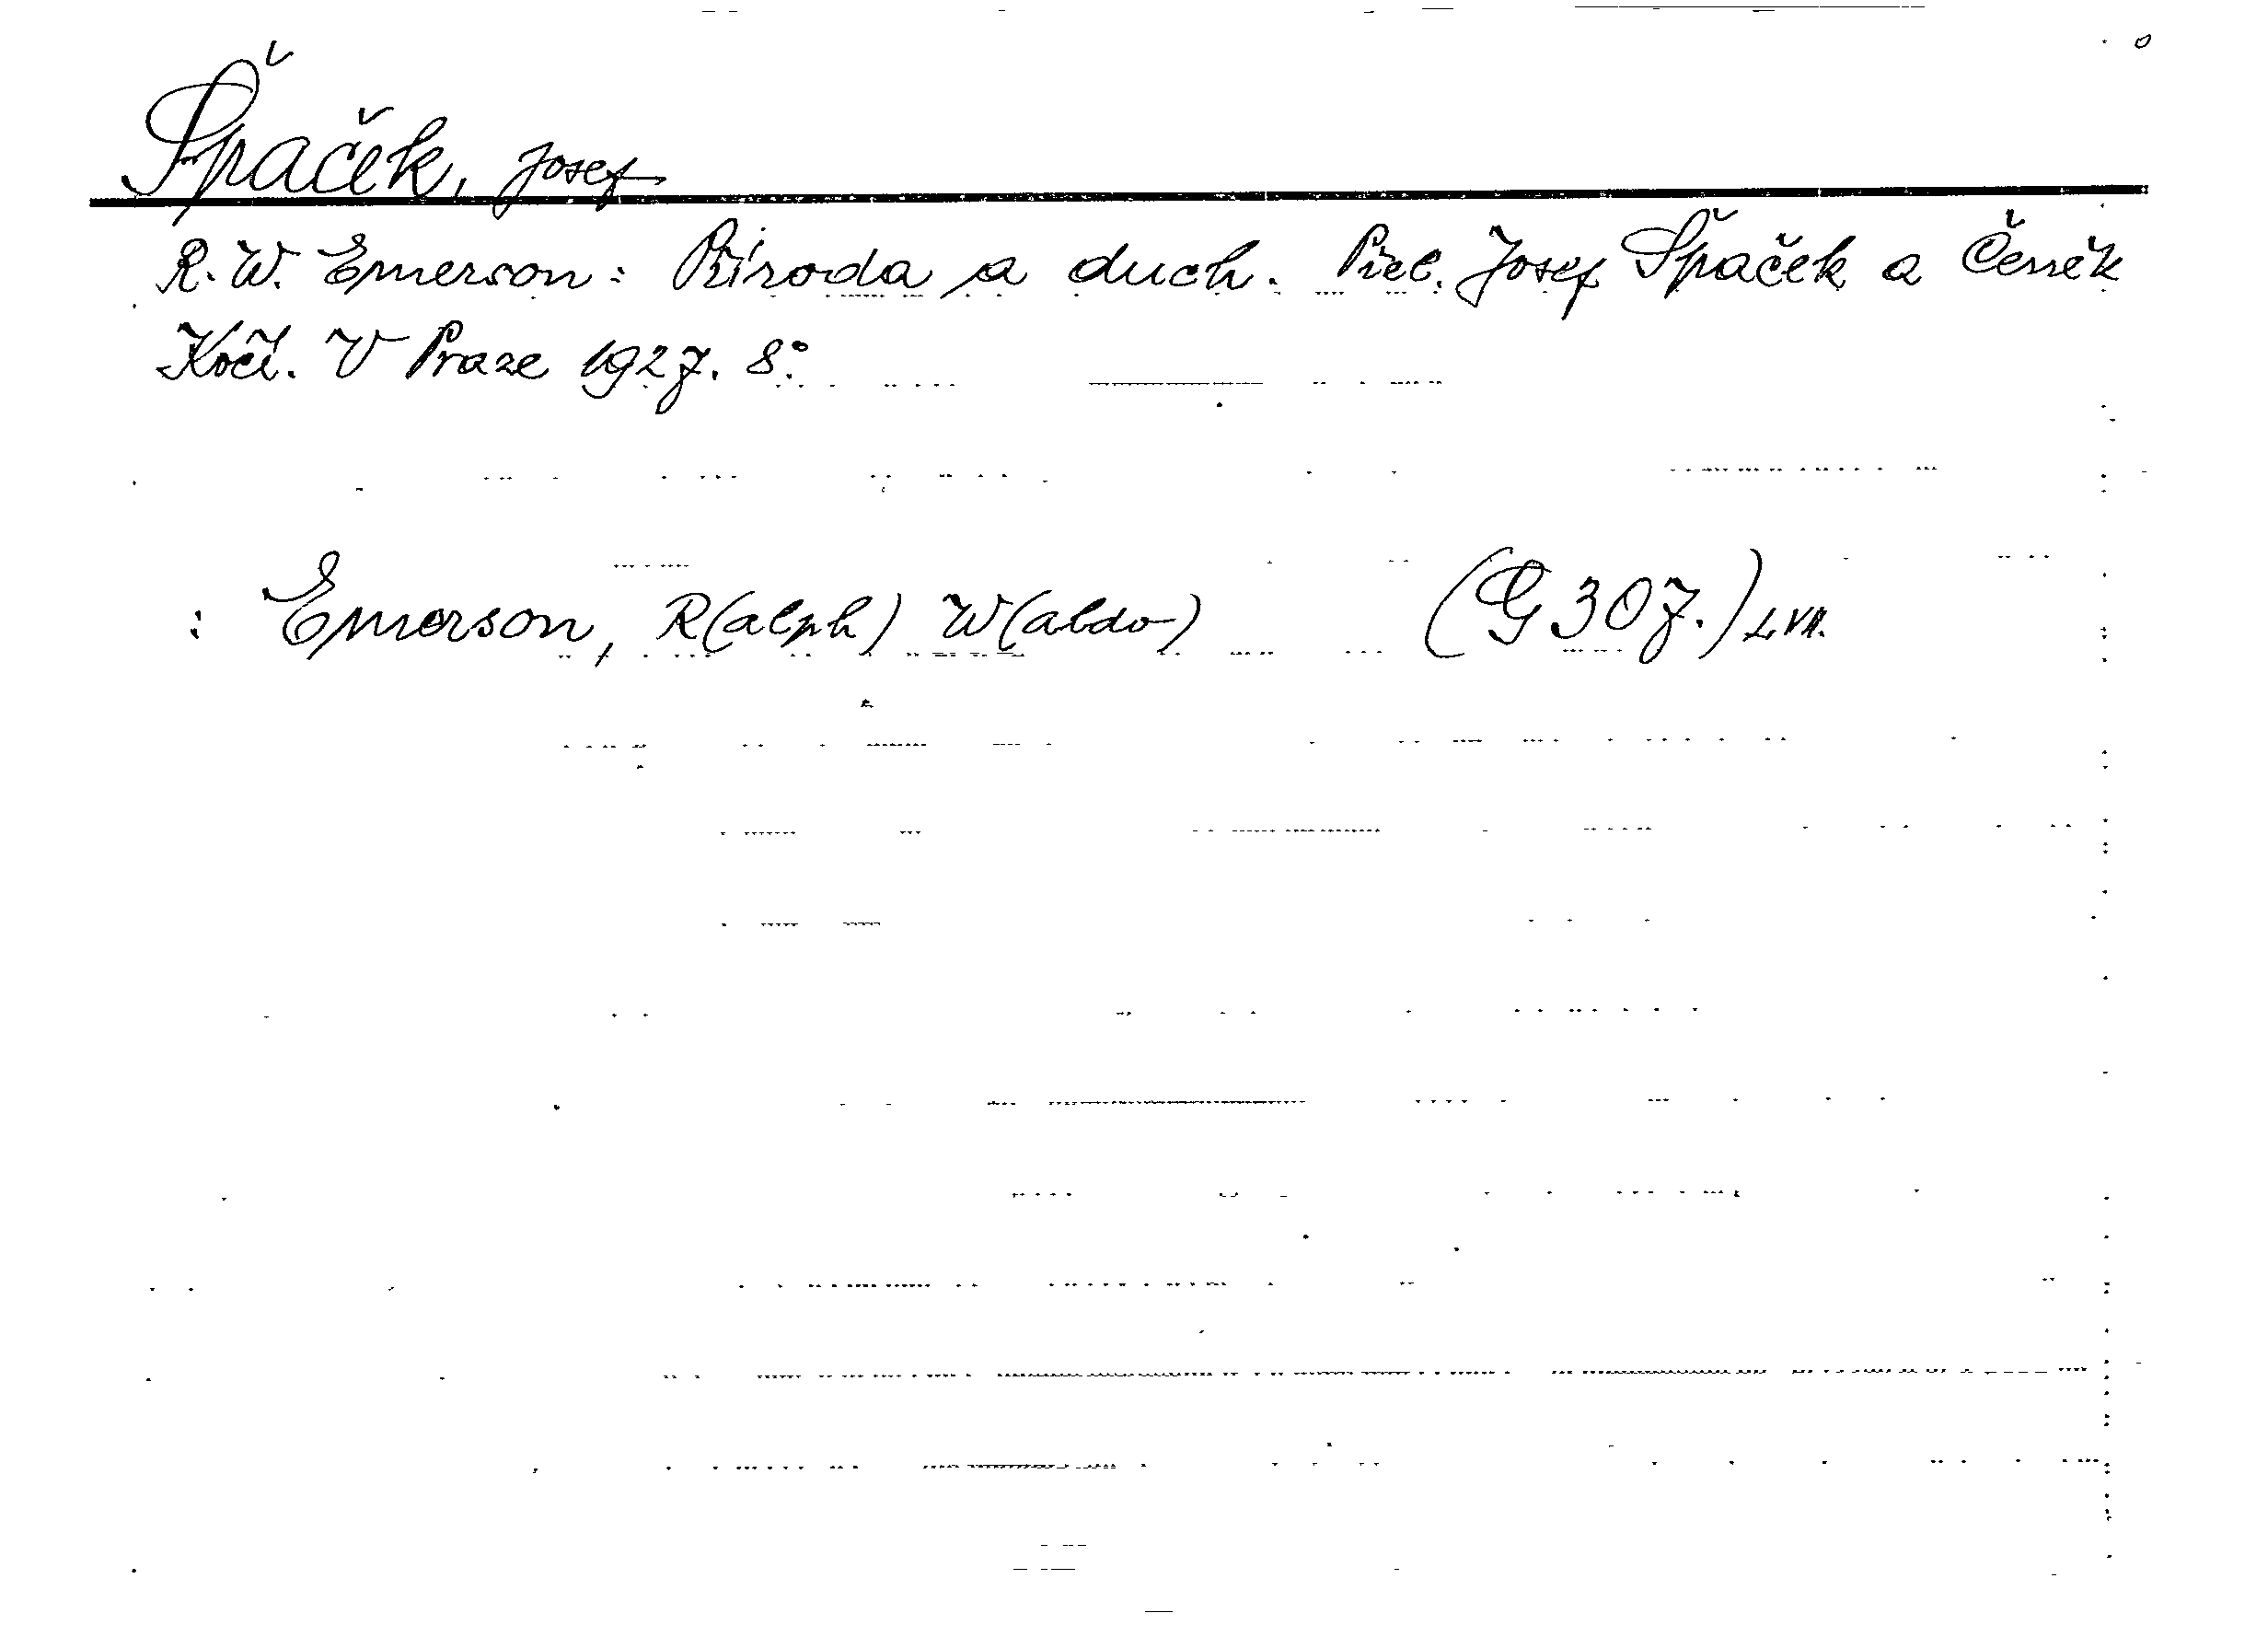 Špaček, Josef
R. W. Emerson: Příroda a duch. Přel. Josef Špaček a Čeněk
Kočí. V Praze 1927. 8°.
: Emerson, R(alph) W(aldo) (G 307.) L.VII.